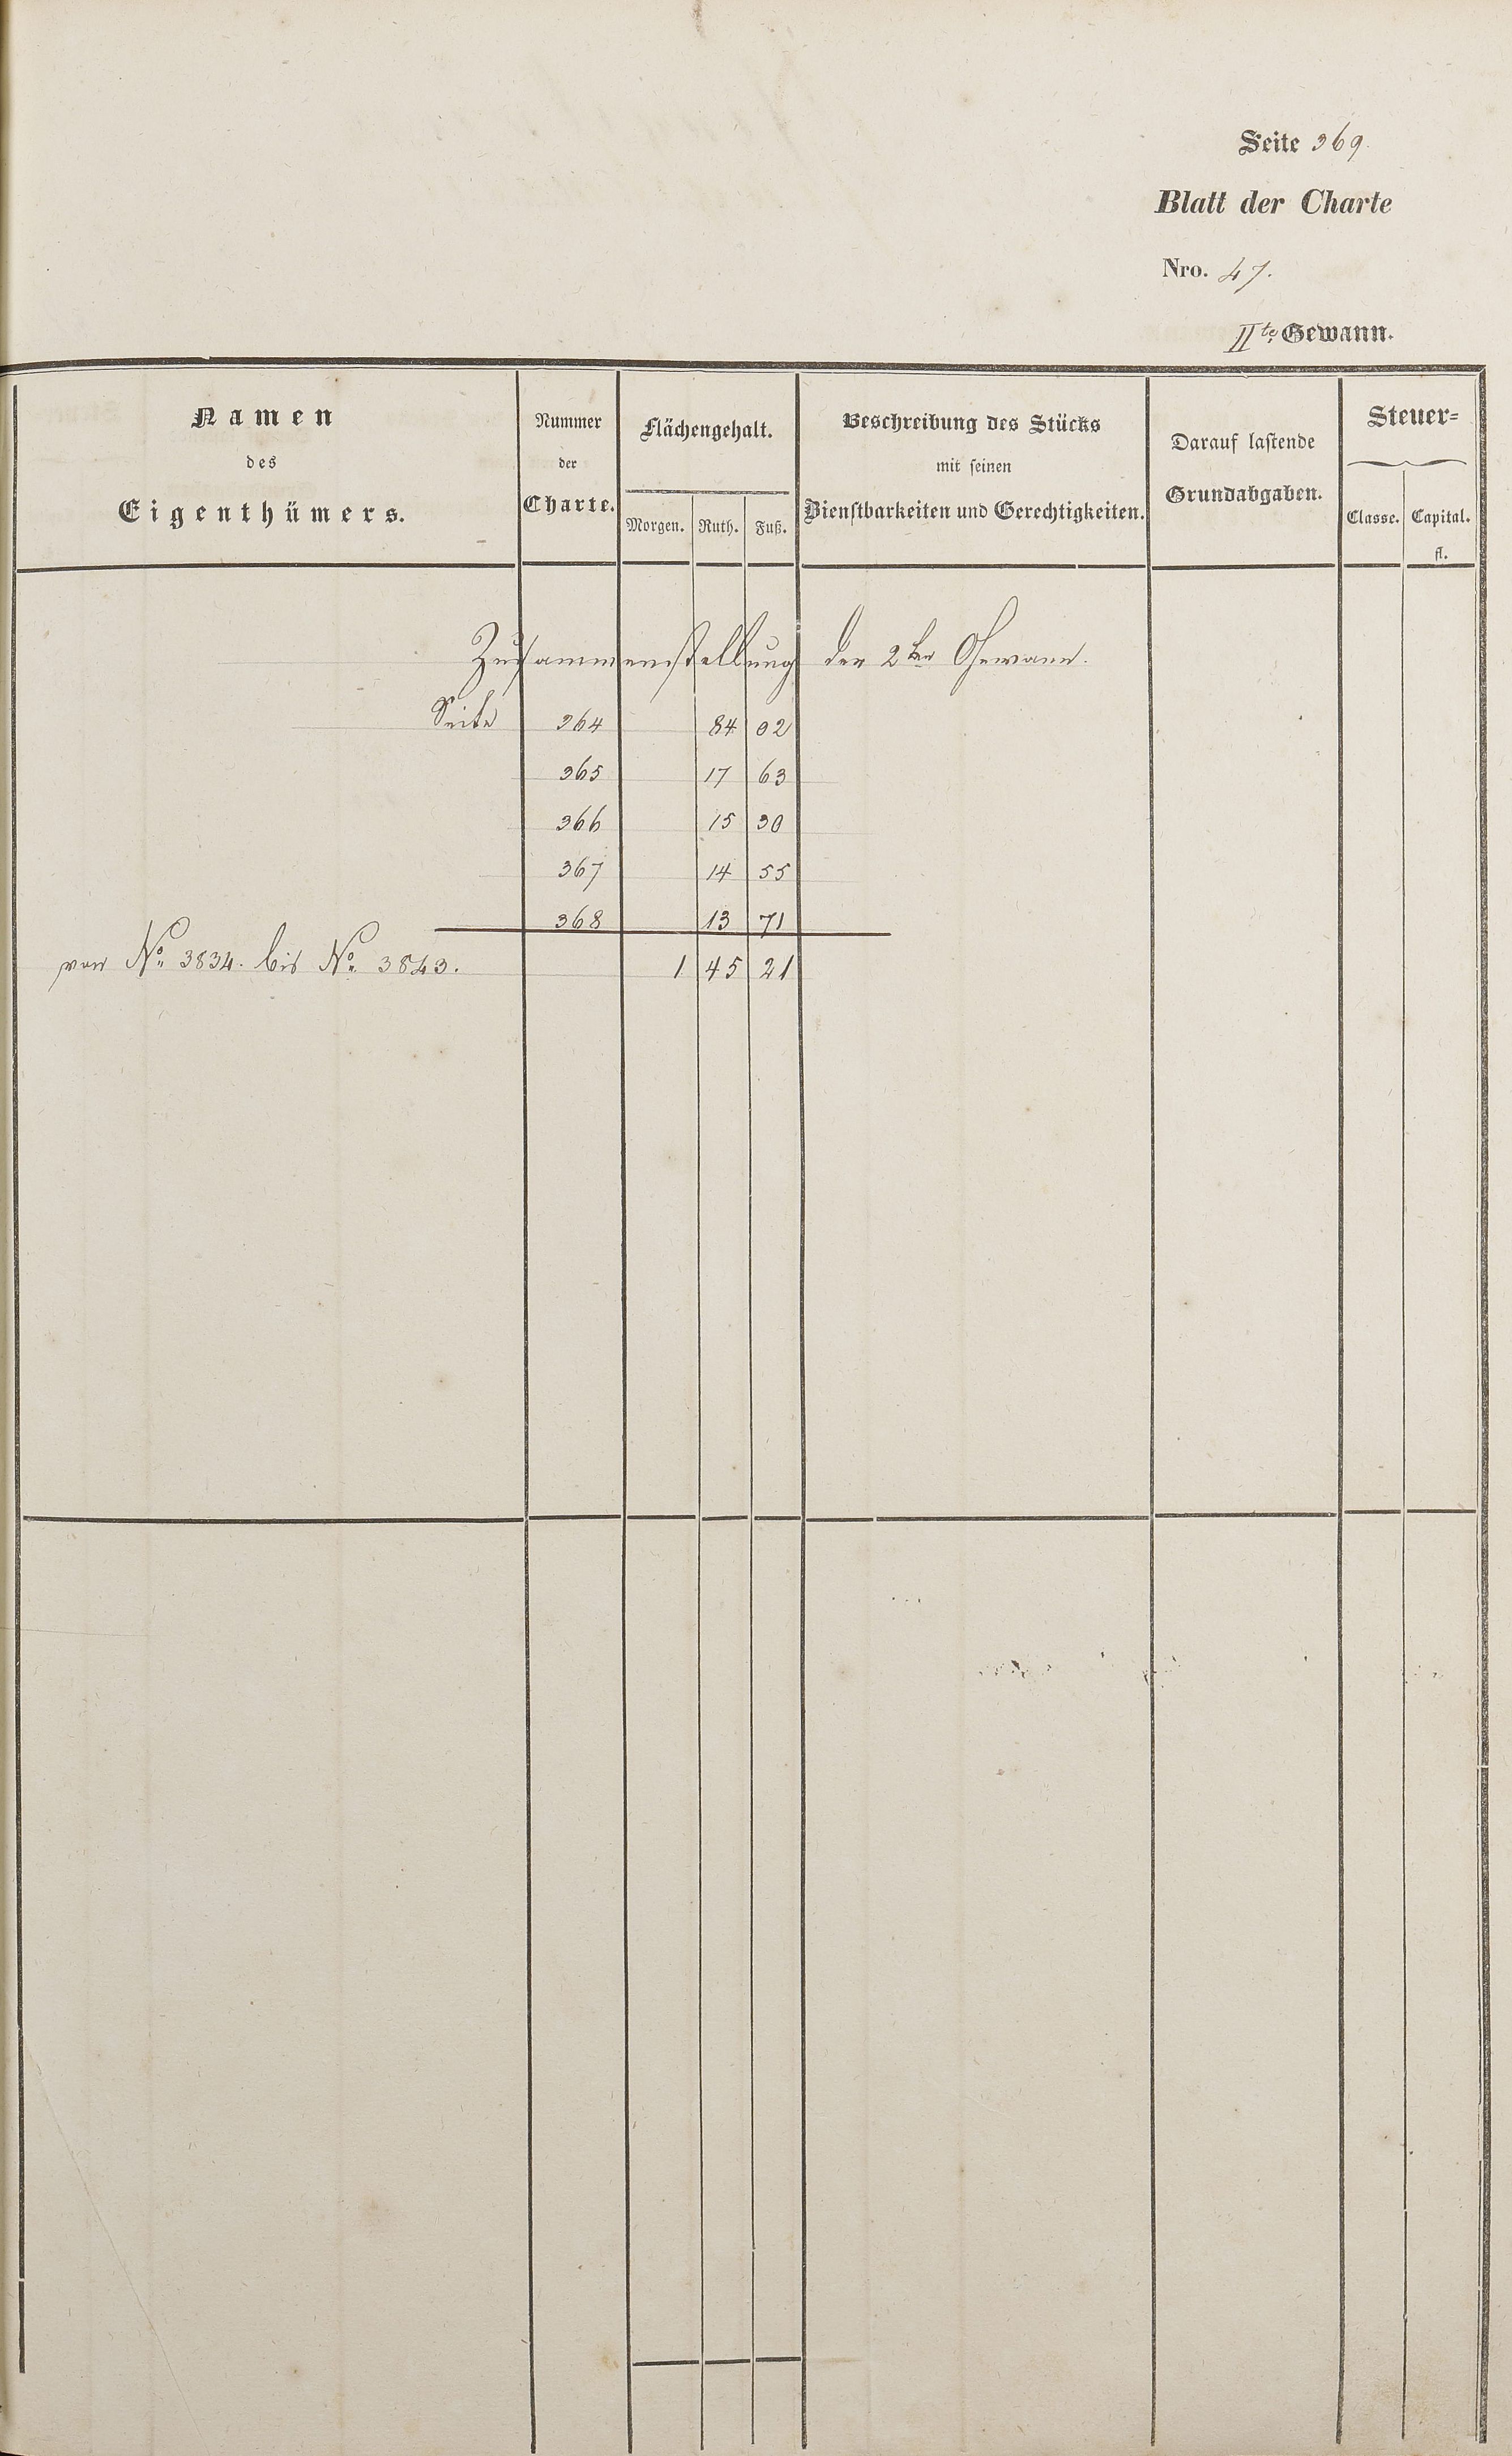 Seite 369.
Blatt der Charte
Nro. 47.
IIte Gewann.
Namen des Eigenthümers.
Nummer der Charte.
Flächengehalt.
Morgen. Ruth. Fuß.
Beschreibung des Stücks mit seinen Dienstbarkeiten und Gerechtigkeiten.
Darauf lastende Grundabgaben.
Steuer=
Classe. Capital.
fl.
Zusammenstellung der 2ten Gewann.
Seite 364 84 02
365 17 63
366 15 30
367 14 55
368 13 71
von No. 3834. bis No. 3843. 1 45 21